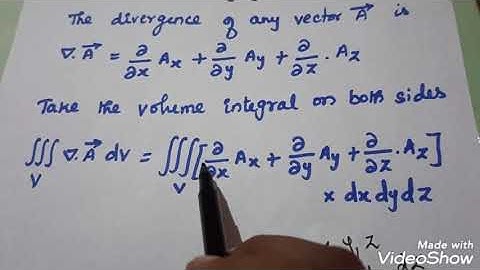 The divergence of any vector A⃗ is
∇.A⃗ = ∂/∂x Ax + ∂/∂y Ay + ∂/∂z . Az
Take the volume integral on both sides
∭V ∇.A⃗ dv = ∭V [∂/∂x Ax + ∂/∂y Ay + ∂/∂z . Az]
x dx dy dz
Made with
VideoShow